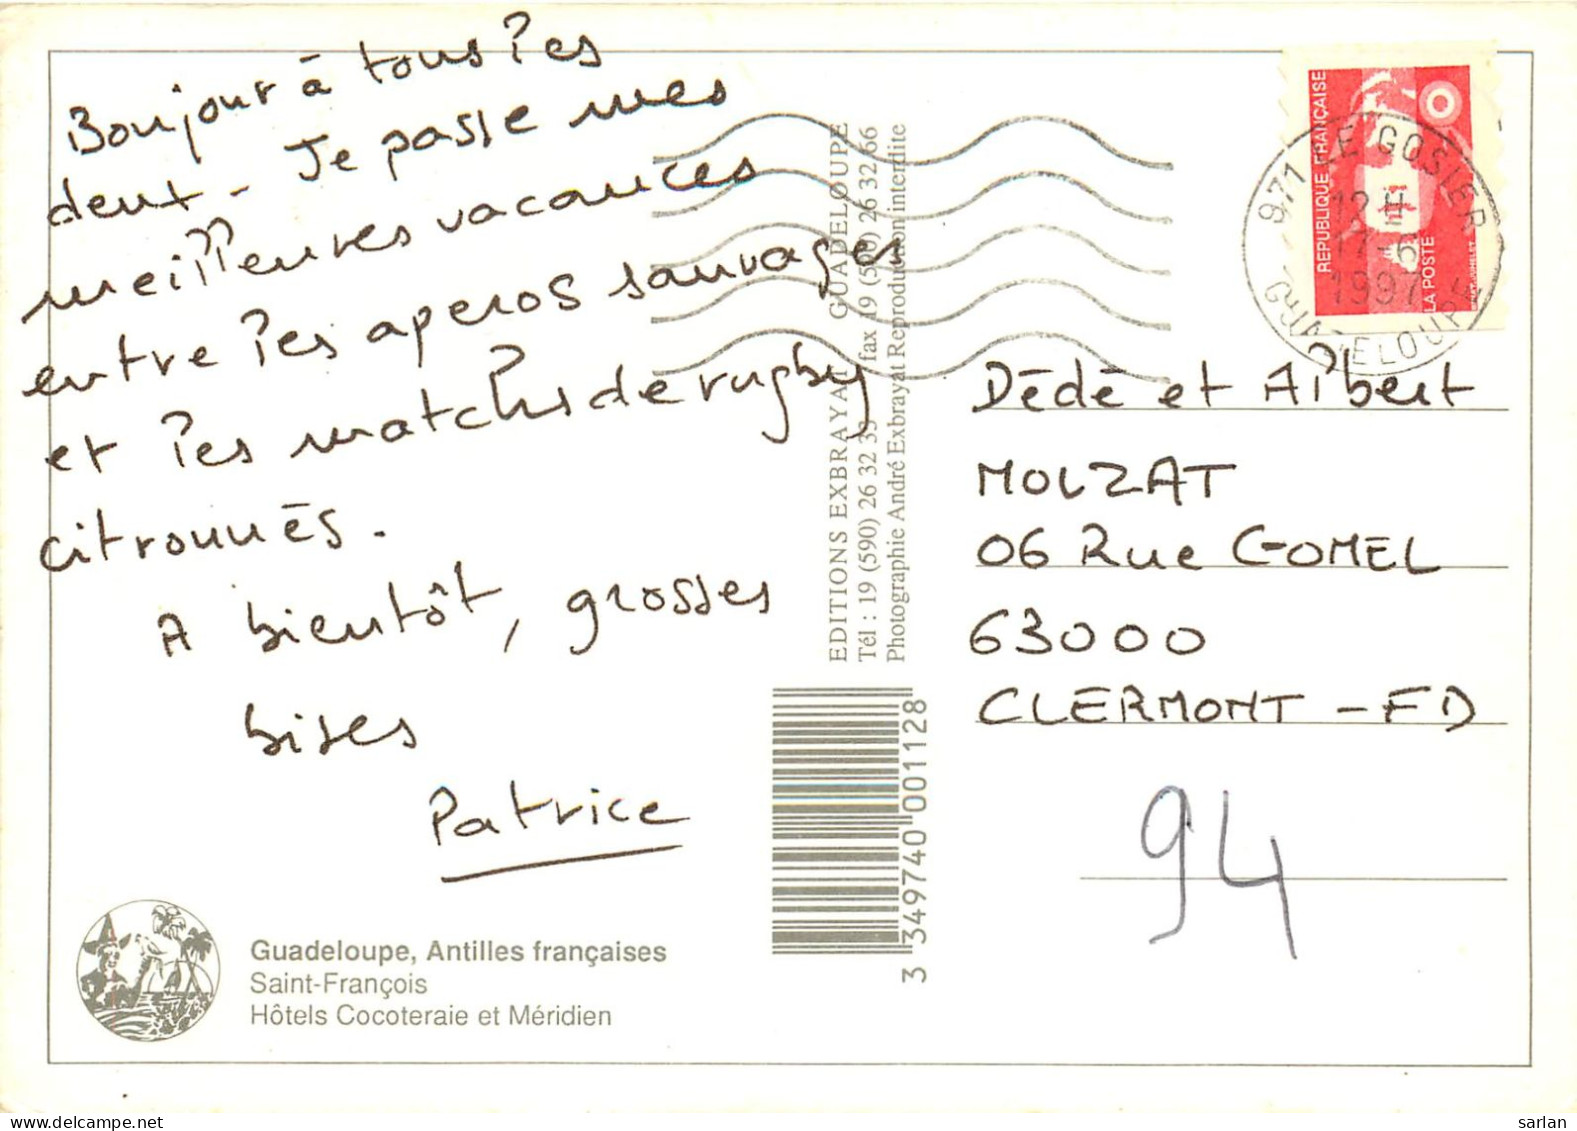 Bonjour à tous les
deux - Je passe mes
meilleures vacances
entre les aperos sauvages
et les matchs de rugby
citronnés.
A bientôt, grosses
bises
Patrice
Guadeloupe, Antilles françaises
Saint-François
Hôtels Cocoteraie et Méridien
EDITIONS EXBRAYAT GUADELOUPE
Tél : 19 (590) 26 32 33 fax 19 (590) 26 32 66
Photographie André Exbrayat Reproduction interdite
3 349740 001128
REPUBLIQUE FRANÇAISE
LA POSTE
971 LE GOSIER
12 H
17-6
1997
GUADELOUPE
Dédé et Albert
MOUZAT
06 Rue GOMEL
63000
CLERMONT - FD
94
sarlan